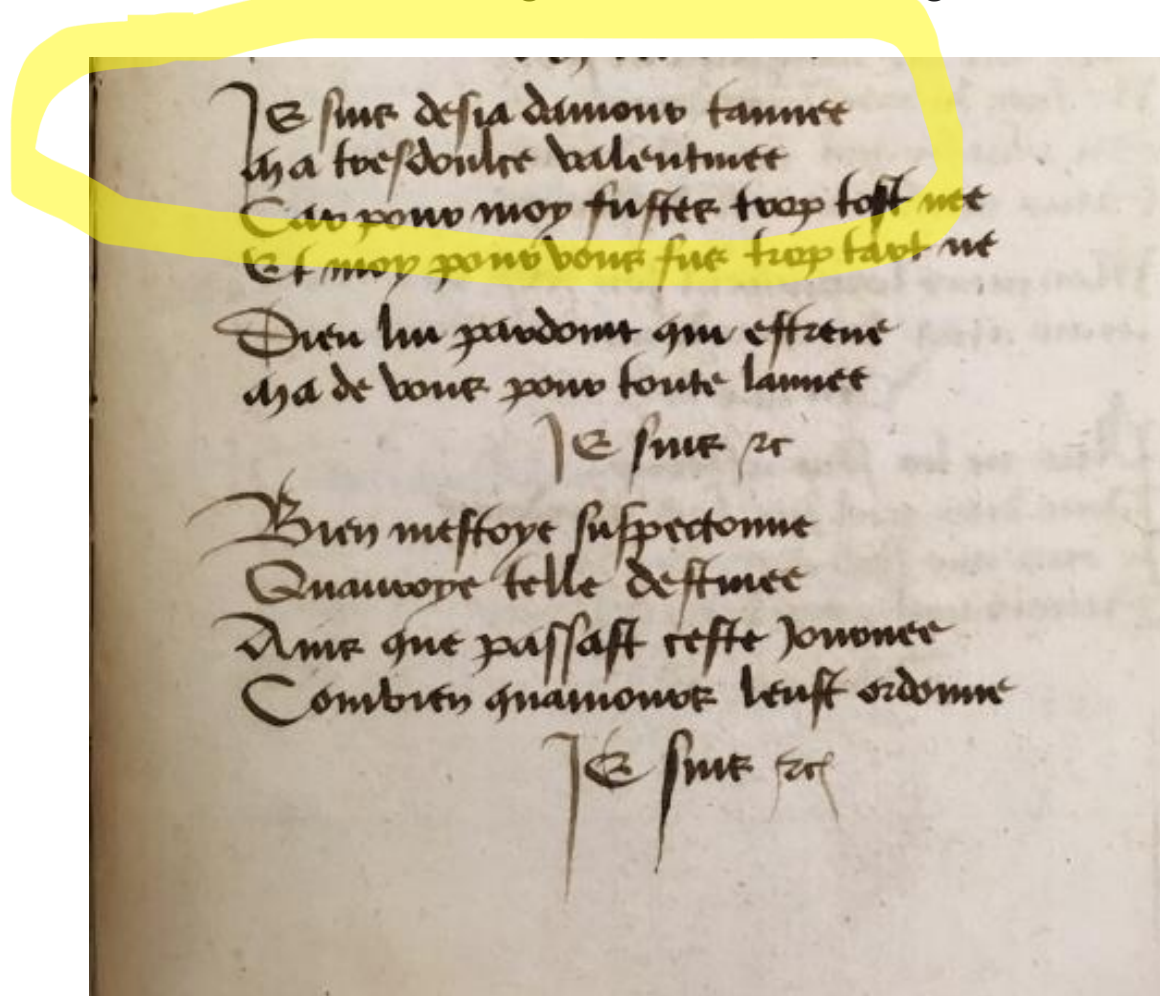 Je suis desia damour tannee
Ma tresdoulce valentinee
Car pour moy fustes trop tost nee
Et moy pour vous fus trop tart ne
Dieu lui pardoint qui estrene
Ma de vous pour toute lannee
Je suis &c
Bien mestoye suspeconne
Quauroye telle destinee
Ains que passast ceste Journee
Combien quamours leust ordonne
Je suis &c